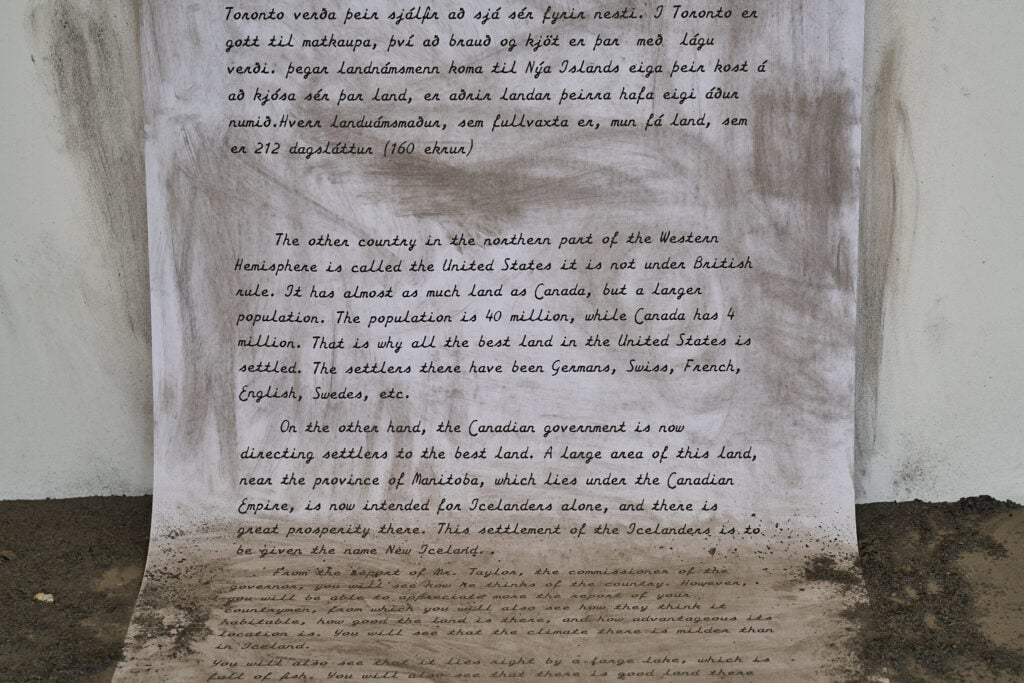 Toronto verða þeir sjálfir að sjá sér fyrir nesti. Í Toronto er
gott til matkaupa, því að brauð og kjöt er þar með lágu
verði. þegar landnámsmenn koma til Nýa Íslands eiga þeir kost á
að kjósa sér þar land, er aðrir landar þeirra hafa eigi áður
numið.Hverr landuámsmaður, sem fullvaxta er, mun fá land, sem
er 212 dagsláttur (160 ekrur)
The other country in the northern part of the Western
Hemisphere is called the United States it is not under British
rule. It has almost as much land as Canada, but a larger
population. The population is 40 million, while Canada has 4
million. That is why all the best land in the United States is
settled. The settlers there have been Germans, Swiss, French,
English, Swedes, etc.
On the other hand, the Canadian government is now
directing settlers to the best land. A large area of this land,
near the province of Manitoba, which lies under the Canadian
Empire, is now intended for Icelanders alone, and there is
great prosperity there. This settlement of the Icelanders is to
be given the name New Iceland.
From the report of Mr. Taylor, the commissioner of the
governor, you will see how he thinks of the country. However,
you will be able to appreciate more the report of your
countrymen, from which you will also see how they think it
habitable, how good the land is there, and how advantageous its
location is. You will see that the climate there is milder than
in Iceland.
You will also see that it lies right by a large lake, which is
full of fish. You will also see that there is good land there